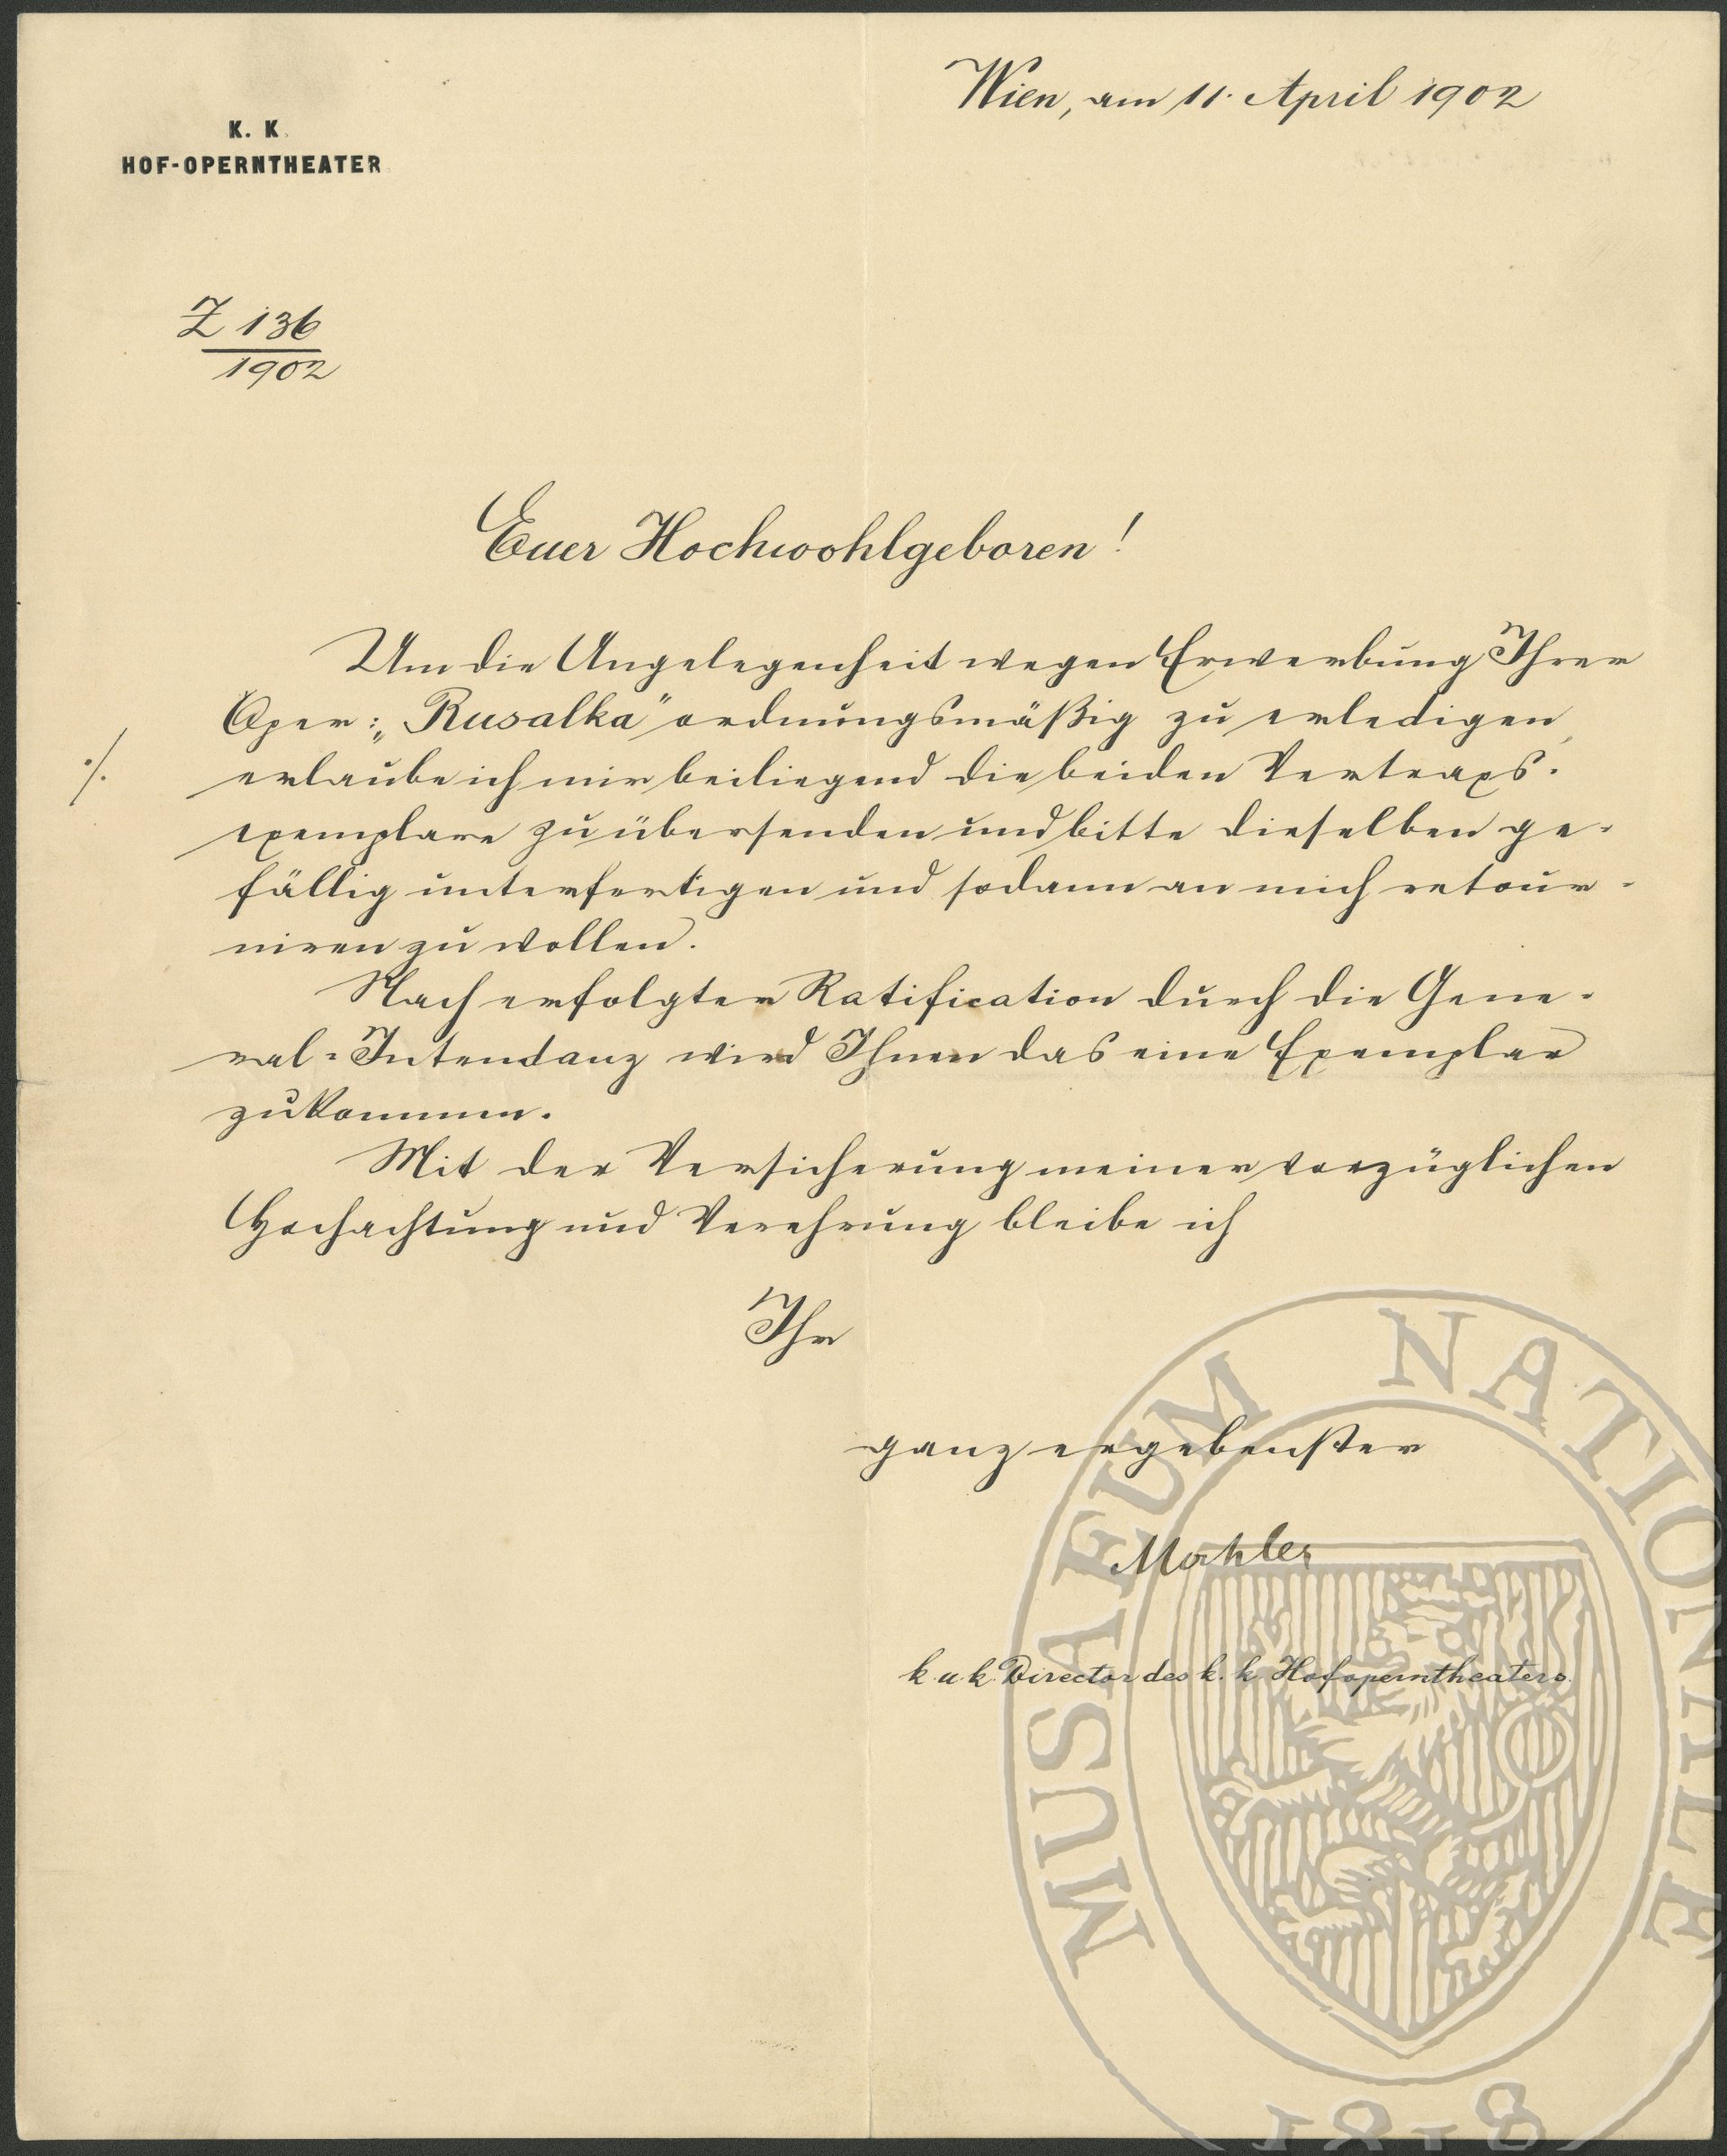 Wien, am 11. April 1902
K. K.
HOF-OPERNTHEATER
Z 136
1902
Euer Hochwohlgeboren!
Um die Angelegenheit wegen Erwerbung Ihrer
Oper: „Rusalka" ordnungsmäßig zu erledigen,
./.
erlaube ich mir beiliegend die beiden Vertrags-
exemplare zu übersenden und bitte dieselben ge-
fällig unterfertigen und sodann an mich retour-
niren zu wollen.
Nach erfolgter Ratification durch die Gene-
ral-Intendanz wird Ihnen das eine Exemplar
zukommen.
Mit der Versicherung meiner vorzüglichen
Hochachtung und Verehrung bleibe ich
Ihr
ganz ergebenster
Mahler
k. u. k. Director des k. k. Hofoperntheaters.
MUSAEUM NATIONALE
1818